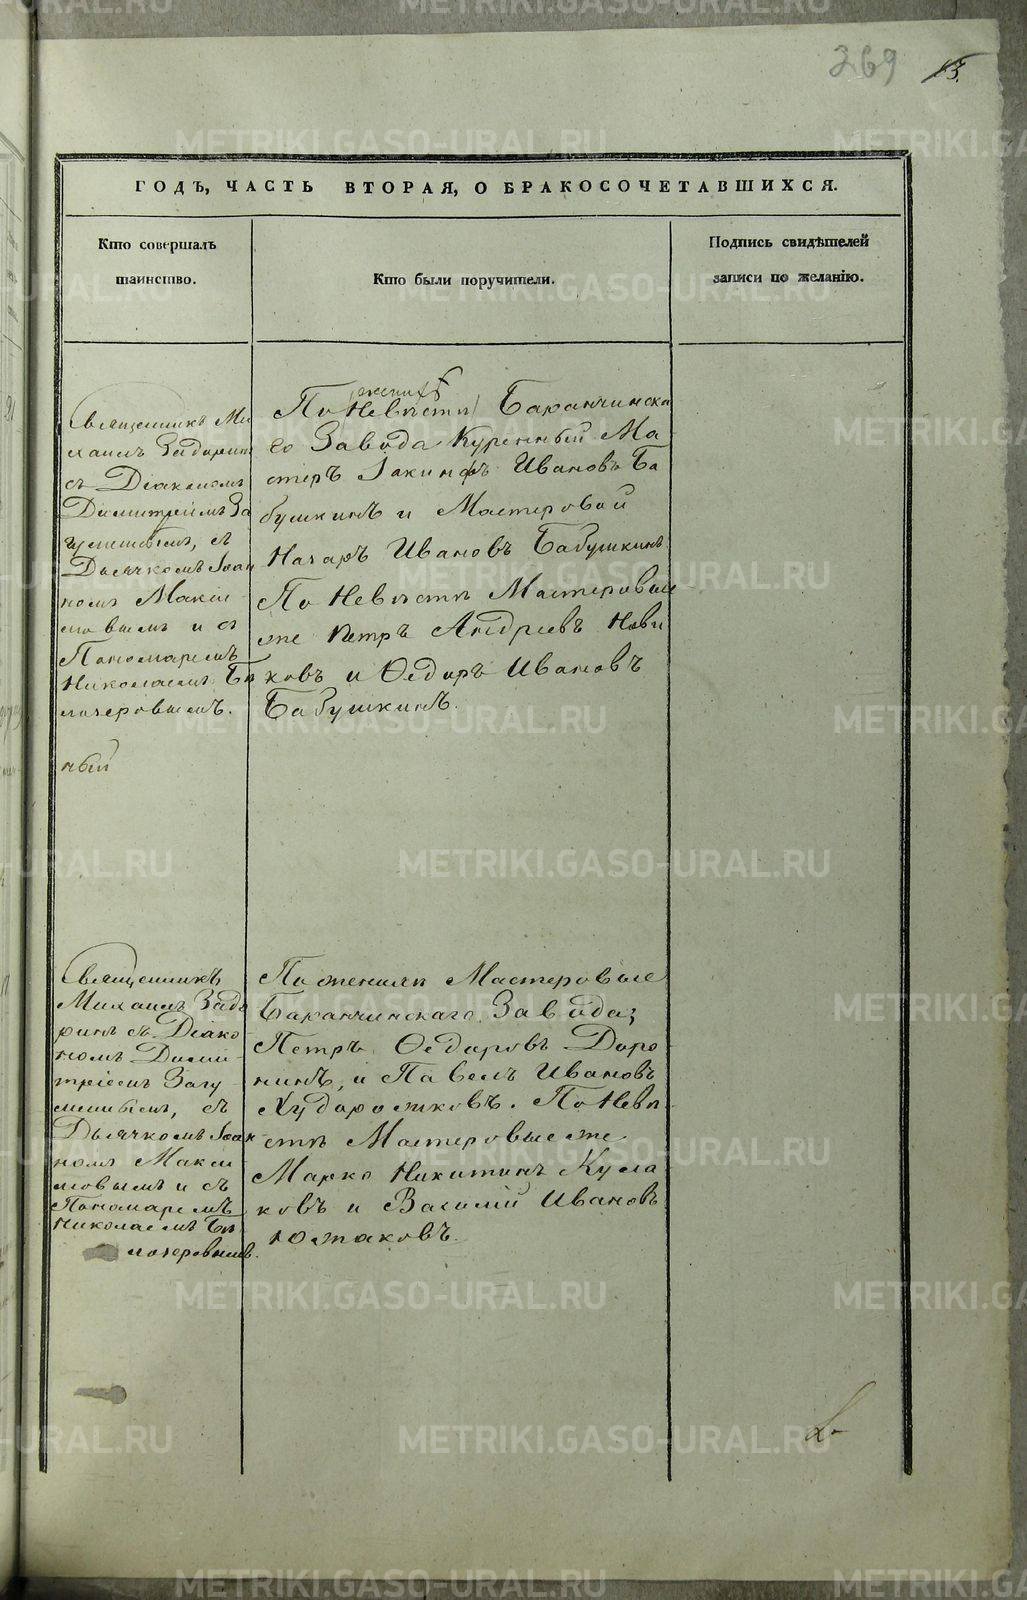 269 13.
ГОДЪ, ЧАСТЬ ВТОРАЯ, О БРАКОСОЧЕТАВШИХСЯ.
Кто совершалъ
таинство.
Кто были поручители.
Подпись свидѣтелей
записи по желанію.
Священникъ Ми
хаилъ Задоринъ
съ Діакономъ
Димитріемъ За
гуменнымъ, съ
Дьячкомъ Іоан
номъ Макси-
мовымъ и съ
Пономаремъ
Николаемъ Бѣ
лочеровымъ.
ный
женихѣ
По Невѣстѣ Баранчинска
го Завода Куренный Ма
стеръ Іакинфъ Ивановъ Ба
бушкинъ и Мастеровой
Назаръ Ивановъ Бабушкинъ
По Невѣстѣ Мастеровые
же Петръ Андреевъ Нови
ковъ и Ѳедоръ Ивановъ
Бабушкинъ.
Священникъ
Михаилъ Задо
ринъ съ Діако
номъ Дими-
тріемъ Загу
меннымъ, съ
Дьячкомъ Іоан
номъ Макси
мовымъ и съ
Пономаремъ
Николаемъ Бѣ
лочеровымъ.
По женихѣ Мастеровые
Баранчинскаго Завода;
Петръ Ѳедоровъ Доро
нинъ, и Павелъ Ивановъ
Худорожковъ. По Невѣ
стѣ Мастеровые же
Марко Никитинъ Кула
ковъ и Василій Ивановъ
Южаковъ.
METRIKI.GASO-URAL.RU